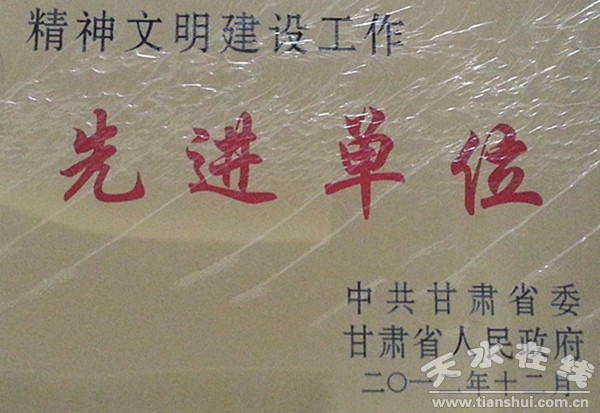 精神文明建设工作
先进单位
中共甘肃省委
甘肃省人民政府
二〇一二年十二月
天水在线
www.tianshui.com.cn